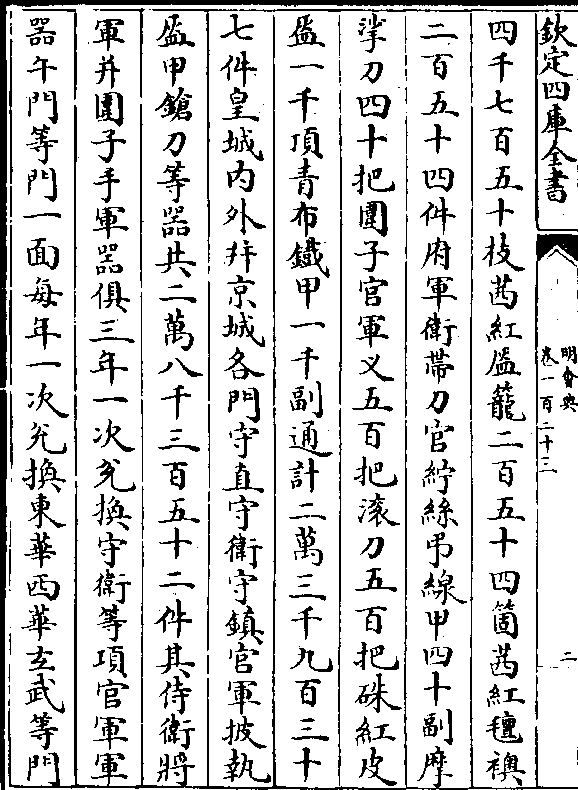 欽定四庫全書
明會典
卷一百二十三
二
四千七百五十枝茜紅盔籠二百五十四箇茜紅氊襖
二百五十四件府軍衛帶刀官紵絲弔線甲四十副摩
挲刀四十把圍子官軍义五百把滚刀五百把硃紅皮
盔一千項青布鐵甲一千副通計二萬三千九百三十
七件皇城内外并京城各門守直守衛守鎮官軍披執
盔甲鎗刀等器共二萬八千三百五十二件其侍衛將
軍并圍子手軍器俱三年一次兊換守衛等項官軍軍
器午門等門一面每年一次兊換東華西華玄武等門